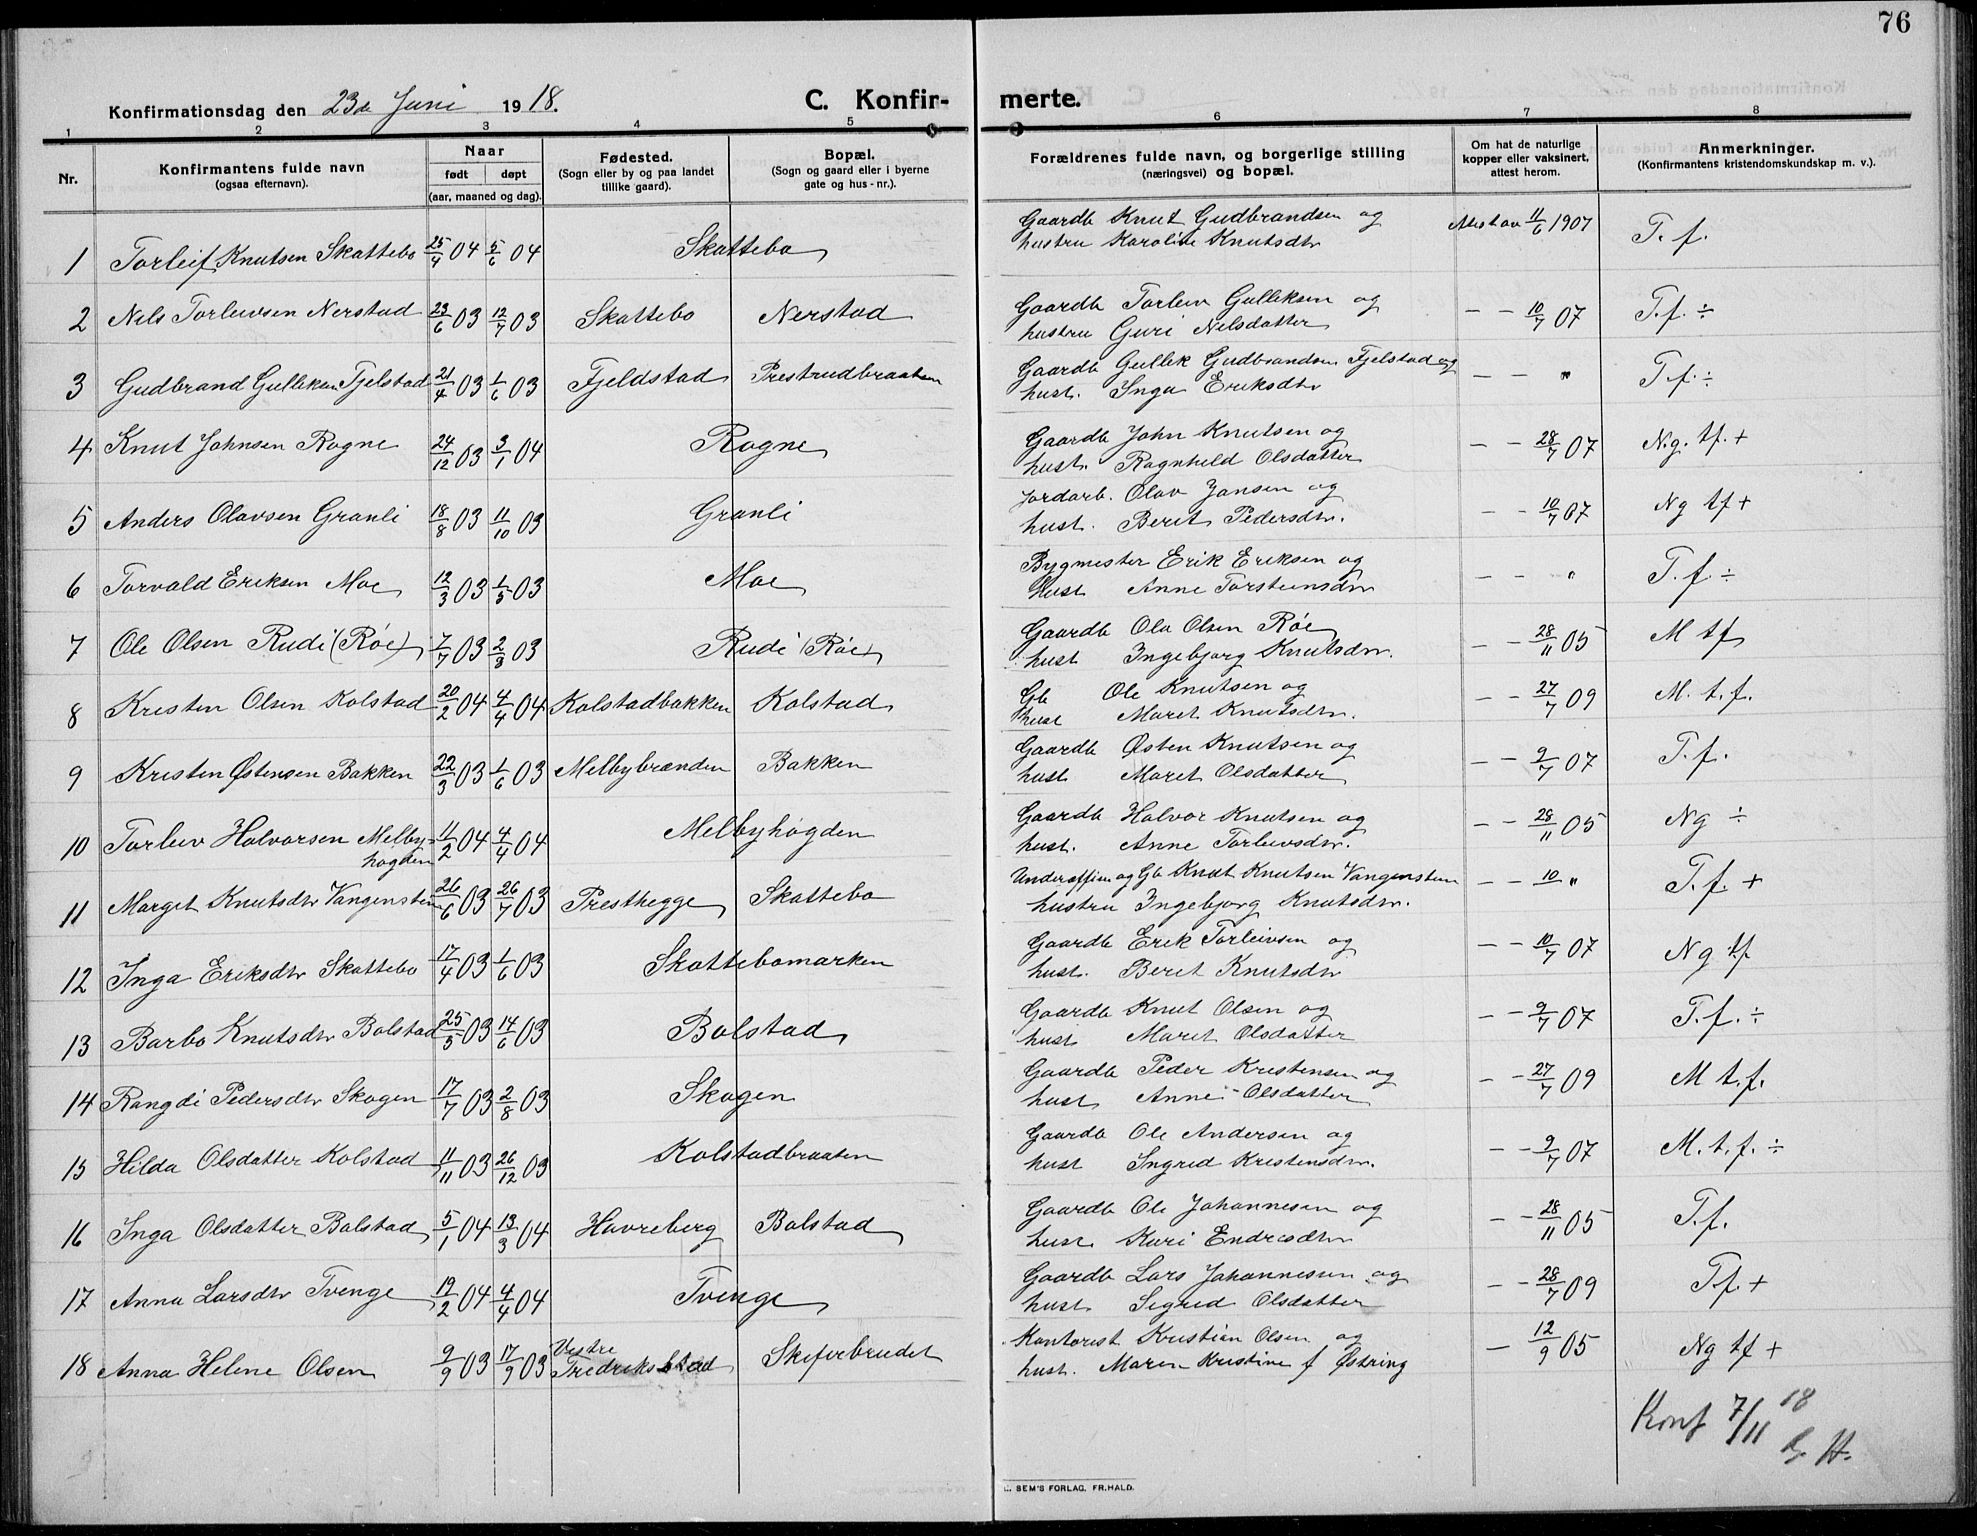 76
Konfirmationsdag den 23de Juni 1918.
C. Konfir-
merte.
1 2 3 4 5 6 7 8
Nr.
Konfirmantens fulde navn
(ogsaa efternavn).
Naar
født døpt
(aar, maaned og dag).
Fødested.
(Sogn eller by og paa landet
tillike gaard).
Bopæl.
(Sogn og gaard eller i byerne
gate og hus-nr.).
Forældrenes fulde navn, og borgerlige stilling
(næringsvei) og bopæl.
Om hat de naturlige
kopper eller vaksinert,
attest herom.
Anmerkninger.
(Konfirmantens kristendomskundskap m. v.).
1 Torleif Knutsen Skattebo 25/4 04 5/6 04 Skattebo
Gaardb Knut Gudbrandsen og
hustru Karoline Knutsdtr
11/6 1907 T. f.
2 Nils Torleivsen Nerstad 23/6 03 12/7 03 Skattebo Nerstad
Gaardb Torleiv Gulliksen og
hustru Guri Nilsdatter
— — 10/7 07 T.f. ÷
3 Gudbrand Gulliksen Fjelstad 21/4 03 1/6 03 Fjeldstad Prestrudbraaten
Gaardb Gullik Gudbrandsen Fjelstad og
hust. Inga Eriksdtr
— — " T.f. ÷
4 Knut Johnsen Rogne 24/12 03 3/1 04 Rogne
Gaardb John Knutsen og
hust. Ragnhild Olsdatter
— — 28/7 07 N.g. tf. +
5 Anders Olavsen Granli 18/8 03 11/10 03 Granli
Jordarb. Olav Jansen og
hust. Berit Pedersdtr.
— — 10/7 07 Ng tf +
6 Torvald Eriksen Moe 12/3 03 1/5 03 Moe
Bygmester Erik Eriksen og
Hust Anne Torsteinsdtr
— — " T. f ÷
7 Ole Olsen Rudi (Røe) 7/7 03 2/8 03 Rudi (Røe)
Gaardb Ola Olsen Røe
hust Ingebjørg Knutsdtr.
— — 28/11 05 M tf
8 Kristen Olsen Kolstad 20/2 04 4/4 04 Kolstadbakken Kolstad
Gb Ole Knutsen og
hust Marit Knutsdtr.
— — 27/7 09 M. t. f.
9 Kristen Østensen Bakken 22/3 03 1/6 03 Melbybrænden Bakken
Gaardb Østen Knutsen og
hust Marit Olsdatter
— — 9/7 07 T. f.
10 Torleiv Halvorsen Melby-
høgden 11/2 04 4/4 04 Melbyhøgden
Gaardb Halvor Knutsen og
hust. Anne Torleivsdtr.
— — 28/11 05 Ng ÷
11 Marget Knutsdtr Vangensten 26/6 03 26/7 03 Presthegge Skattebo
og Gb Knut Knutsen Vangensten
hustru Ingebjørg Knutsdtr.
— — 10/" T. f. +
12 Inga Eriksdtr Skattebo 17/4 03 1/6 03 Skattebomarken
Gaardb Erik Torleivsen og
hust. Berit Knutsdtr
— — 10/7 07 Ng tf
13 Barbo Knutsdtr Bolstad 25/5 03 14/6 03 Bolstad
Gaardb Knut Olsen og
hust Marit Olsdatter
— — 9/7 07 T. f. ÷
14 Rangdi Pedersdtr Skogen 17/7 03 2/8 03 Skogen
Gaardb Peder Kristensen og
hust Anne Olsdatter
— — 27/7 09 M t. f.
15 Hilda Olsdatter Kolstad 11/11 03 26/12 03 Kolstadbraaten
Gaardb Ole Andersen og
hust Ingrid Kristensdtr.
— — 9/7 07 M. t. f. ÷
16 Inga Olsdatter Bolstad 5/1 04 13/3 04 Havreberg Bolstad
Gaardb Ole Johannesen og
hust. Kari Endresdtr
— — 28/11 05 T. f.
17 Anna Larsdtr Tvenge 19/2 04 4/4 04 Tvenge
Gaardb Lars Johannesen og
hust. Sigrid Olsdatter
— — 28/7 09 T. f. +
18 Anna Helene Olsen 9/9 03 17/9 03 Vestre
Fredrikstad Skiferbrudet
Kontorist Kristian Olsen og
hust. Maren Kristine f Østring
— 12/9 05 Ng tf +
Konf 7/11 18
H.
SEM'S FORLAG, FR.HALD.